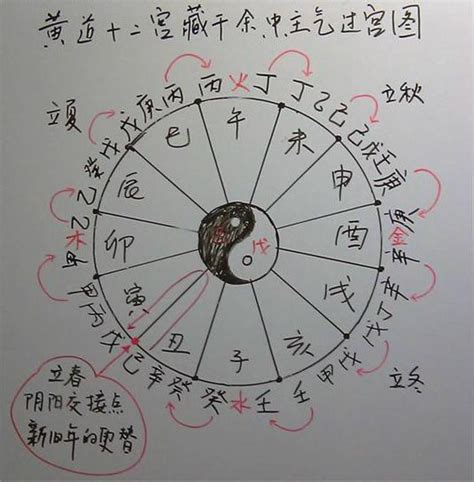 黄道十二宫藏干余中主气过宫图
立夏
戊庚丙
丙火丁
丁乙己
立秋
己戊壬庚
金辛
辛丁戊
戊甲壬
立冬
壬水癸
癸辛己
戊丙甲
甲木乙
乙癸戊
巳
午
未
申
酉
戌
亥
子
丑
寅
卯
辰
戊
立春
阴阳交接点
新旧年的更替